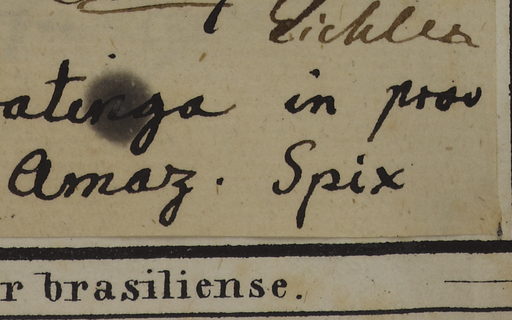 Eichler
atinga in prov
Amaz. Spix
r brasiliense.